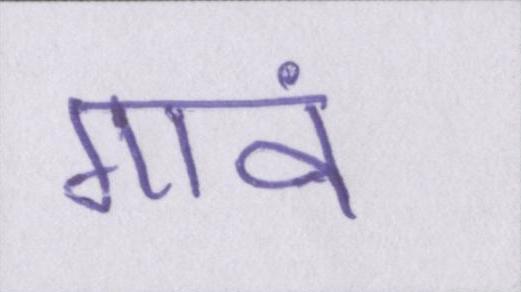 गावं